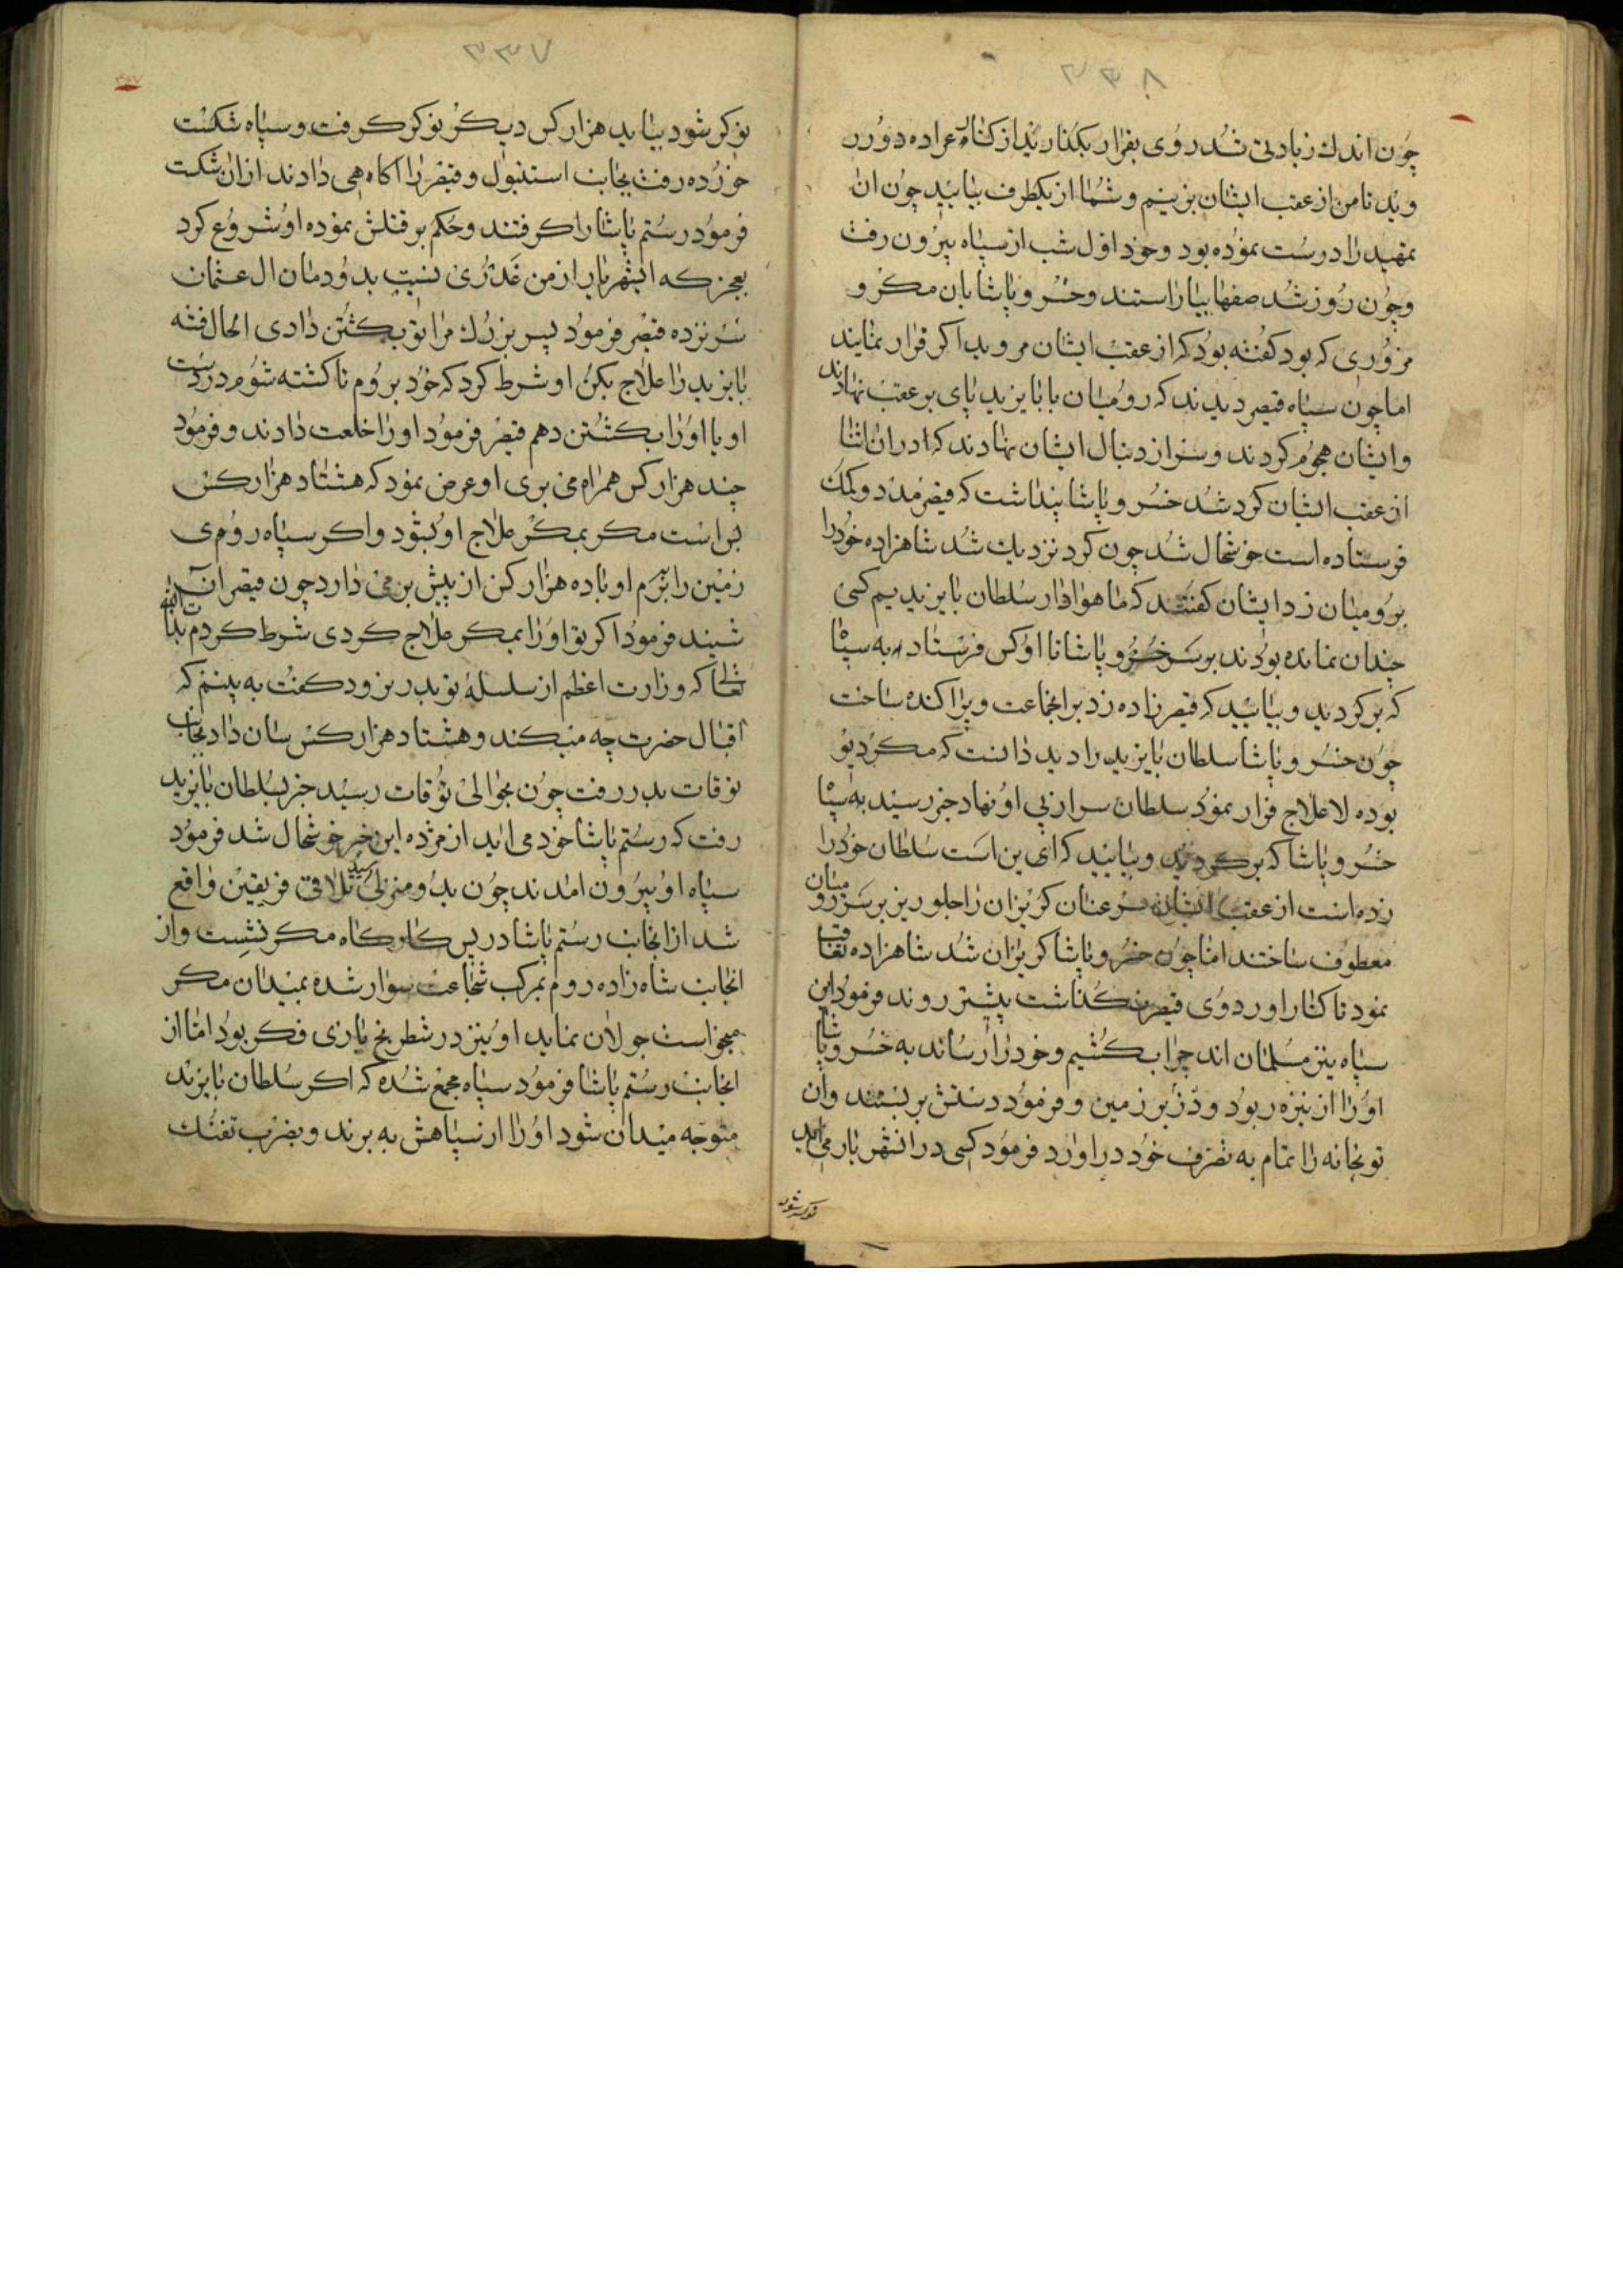 ۳۳۸
چون اندك زیادتی شد روی بفرار بگذارید از کناره عراده دور ر
وید تا من از عقب ایشان بزنیم و شما از یکطرف بیایید چون ان
تمهید را درست نموده بود و خود اول شب از سپاه بیرون رفت
و چون روز شد صفها بیاراستند و خسرو پاشا بان مکر و
مزوری که بود گفته بود که از عقب ایشان مروید اگر فرار نمایند
اما چون سپاه قیصر دیدند که رومیان با بایزید پای بر عقب نهادند
و ایشان هجوم کردند و سر از دنبال ایشان نهادند که در ان اثنا
از عقب ایشان کرد شد خسرو پاشا پنداشت که قیصر مدد و کمك
فرستاده است خوشحال شد چون کرد نزدیك شد شاهزاده خود را
برومیان زد ایشان گفتند که ما هوادار سلطان بایزیدیم کسی
چندان نمانده بودند بر سر خسرو پاشا تا او کس فرستاد به سپاه
که برگردید و بیایید که قیصر زاده زد بر انجماعت و پراکنده ساخت
چون خسرو پاشا سلطان بایزید را دید دانست که مکر دیو
بوده لاعلاج فرار نمود سلطان سر از پی او نهاد خبر رسید به سپاه
خسرو پاشا که برگردید و بیایید که ای بن است سلطان خود را
زده است از عقب ایشان سر عنان گریزان را جلو ریز بر سر رومیان
معطوف ساختند اما چون خسرو پاشا گریزان شد شاهزاده تعاقب
نمود تا کنار اوردوی قیصر نگذاشت پیشتر روند فرمود این
سپاه نیز مسلمان اند چرا بکشیم و خود را رساند به خسرو پاشا
او را از نیزه ربود و زد بر زمین و فرمود دستش بر بستند و ان
توپخانه را تمام به تصرف خود در اورد فرمود کسی در انشهر یار می اید
نوکر شود
۳۳۷
نوکر شود بیاید هزار کس دیگر نوکر گرفت و سپاه شکست
خورده رفت بجانب استنبول و قیصر را آگاهی دادند از ان شکست
فرمود رستم پاشا را گرفتند و حکم بر قتلش نموده او شروع کرد
بعجز که ایشهریار از من غدری نسبت بدودمان ال عثمان
سر نزده قیصر فرمود پسر بزرك مرا تو بکشتن دادی الحال فتنه
بایزید را علاج بکن او شرط کرد که خود بروم تا کشته شوم در دست
او یا او را بکشتن دهم قیصر فرمود او را خلعت دادند و فرمود
چند هزار کس همراه می بری او عرض نمود که هشتاد هزار کس
بس است مگر بمکر علاج او بشود و اگر سپاه روی
زمین را ببرم او با ده هزار کس از پیش بر می دارد چون قیصر ان
شنید فرمود اگر تو او را بمکر علاج کردی شرط کردم بذات الله
تعالی که وزارت اعظم از سلسلهٔ تو بدر نرود گفت به بینم که
اقبال حضرت چه میکند و هشتاد هزار کس سان داد بجانب
توقات بدر رفت چون بحوالی توقات رسید خبر بسلطان بایزید
رفت که رستم پاشا خود می اید از مژده این خبر خوشحال شد فرمود
سپاه او بیرون امدند چون بدو منزلی رسید تلاقی فریقین واقع
شد از انجانب رستم پاشا در پس کاوکاه مکر نشست و از
انجانب شاه زاده روم بمرکب شجاعت سوار شده بمیدان مکر
میخواست جولان نماید او نیز در شطرنج بازی فکر بود اما از
انجانب رستم پاشا فرمود سپاه مجمع شده که اگر سلطان بایزید
متوجه میدان شود او را از سپاهش به برند و بضرب تفنك